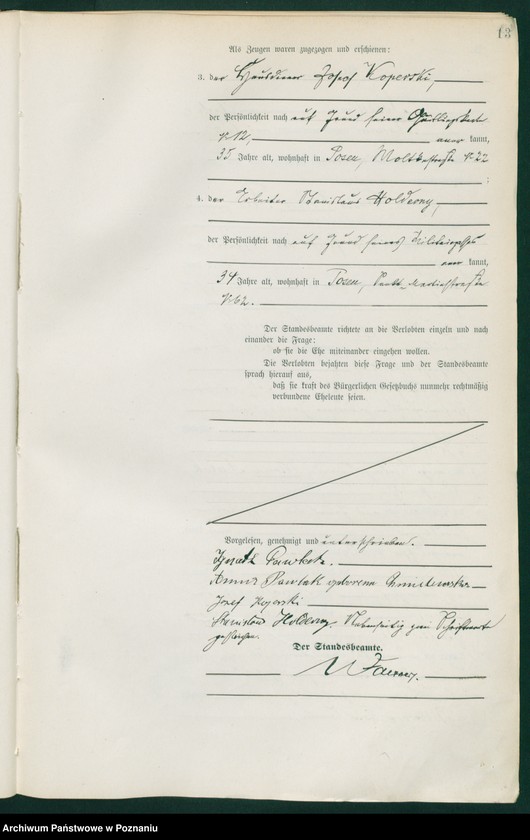 18
Als Zeugen waren zugezogen und erschienen:
3. der Hausdiener Josef Koperski,
der Persönlichkeit nach auf Grund seiner Quittungskarte
№ 12, aner kannt,
35 Jahre alt, wohnhaft in Posen, Moltkestraße № 22
;
4. der Arbeiter Stanislaus Holdeony,
der Persönlichkeit nach auf Grund seines Militärpasses
aner kannt,
34 Jahre alt, wohnhaft in Posen, Sankt-Martinstraße
№ 62.
Der Standesbeamte richtete an die Verlobten einzeln und nach
einander die Frage:
ob sie die Ehe miteinander eingehen wollen.
Die Verlobten bejahten diese Frage und der Standesbeamte
sprach hierauf aus,
daß sie kraft des Bürgerlichen Gesetzbuchs nunmehr rechtmäßig
verbundene Eheleute seien.
Vorgelesen, genehmigt und unterschrieben.
Ignatz Pawlak.
Anna Pawlak geborene
Josef Koperski
Stanislaus Nebenseitig zwei Schriftworte
gestrichen.
Der Standesbeamte.
Archiwum Państwowe w Poznaniu